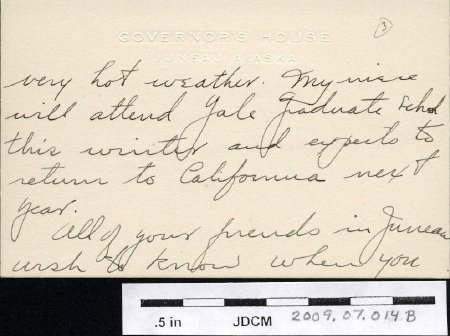 3
GOVERNOR'S HOUSE
JUNEAU, ALASKA
very hot weather. My niece
will attend Yale Graduate School
this winter and expects to
return to California next
year.
All of your friends in Juneau
wish to know when you
.5 in JDCM 2009.07.014B